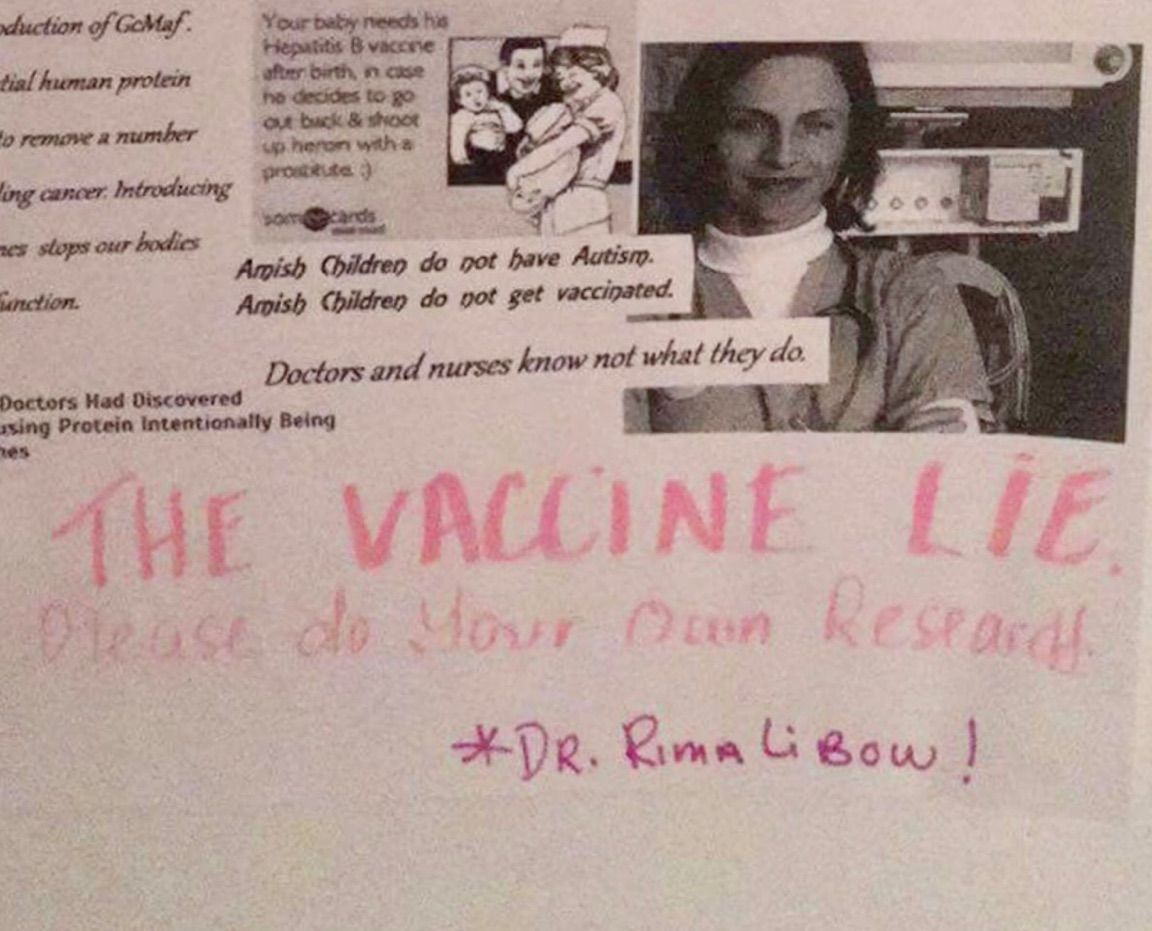 oduction of GcMaf.
tial human protein
to remove a number
ling cancer. Introducing
nes stops our bodies
function.
Your baby needs his
Hepatitis B vaccine
after birth, in case
he decides to go
out back & shoot
up heroin with a
prostitute. :)
som cards
Amish Children do not have Autism.
Amish Children do not get vaccinated.
Doctors and nurses know not what they do.
Doctors Had Discovered
using Protein Intentionally Being
nes
THE VACCINE LIE.
Please do Your Own Research.
*DR. RIMA LiBOW!